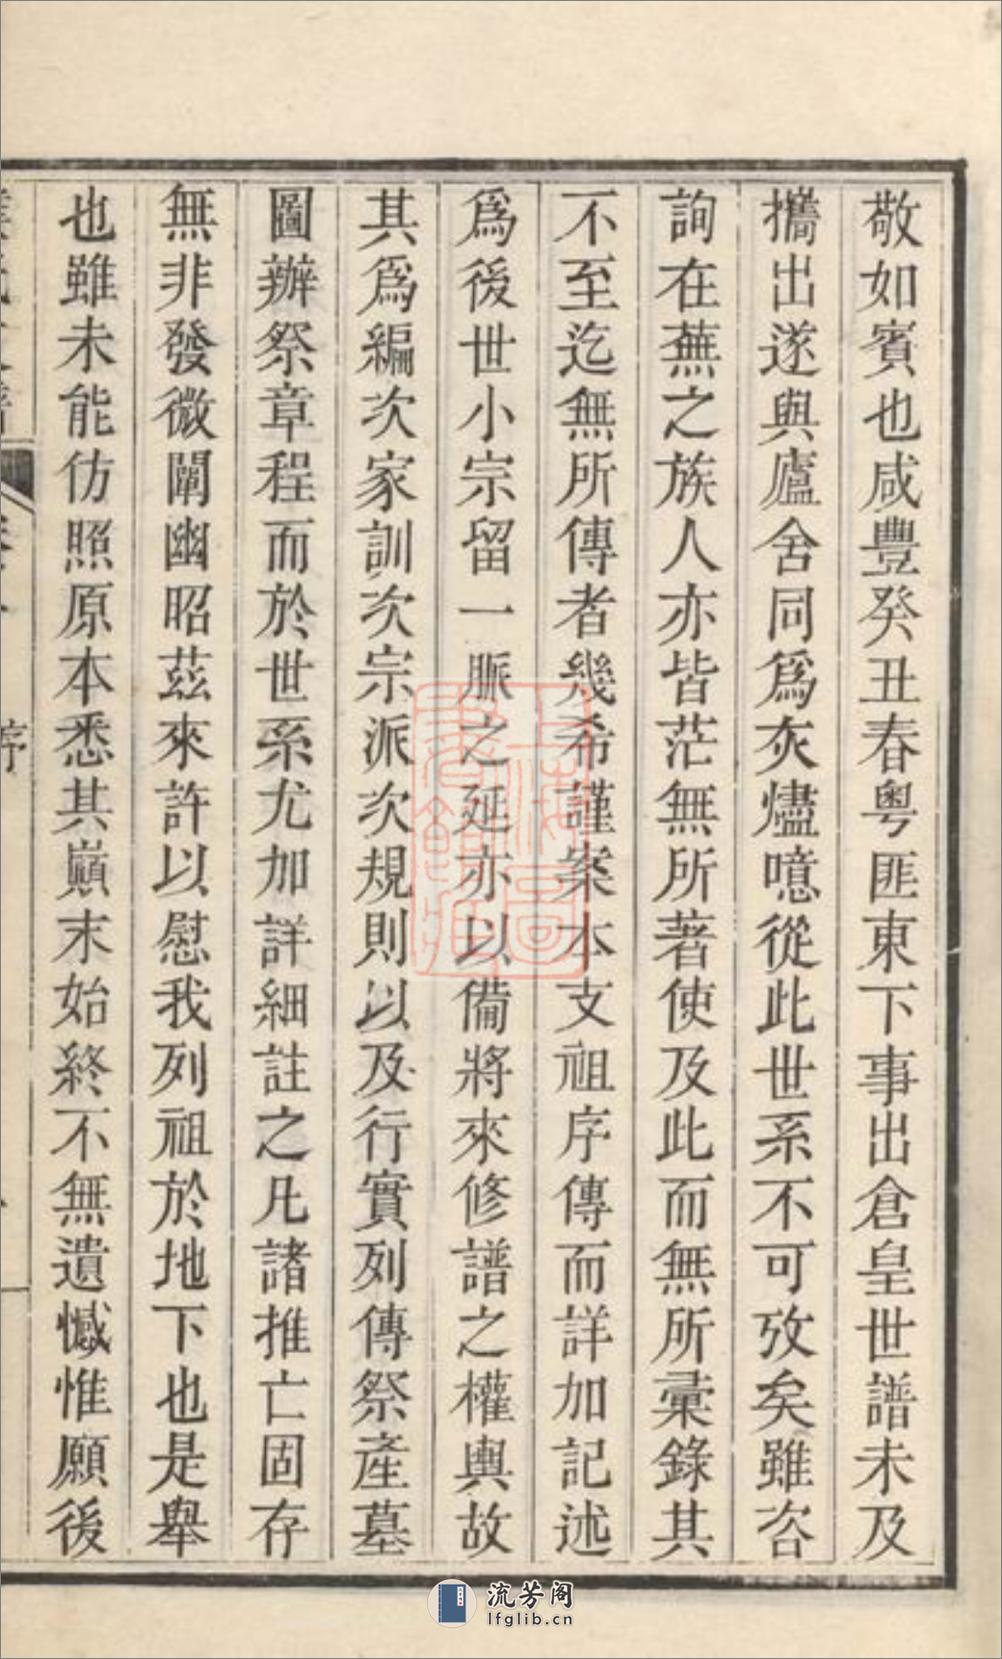 敬如賓也咸豐癸丑春粤匪東下事出倉皇世譜未及
攜出遂與廬舍同爲灰燼噫從此世系不可攷矣雖咨
詢在蕪之族人亦皆茫無所著使及此而無所彙錄其
不至迄無所傳者幾希謹案本支祖序傳而詳加記述
爲後世小宗留一脈之延亦以備將來修譜之權輿故
其爲編次家訓次宗派次規則以及行實列傳祭產墓
圖辦祭章程而於世系尤加詳細註之凡諸推亡固存
無非發微闡幽昭茲來許以慰我列祖於地下也是舉
也雖未能仿照原本悉其巔末始終不無遺憾惟願後
序
上海圖
書館藏
流芳阁
lfglib.cn